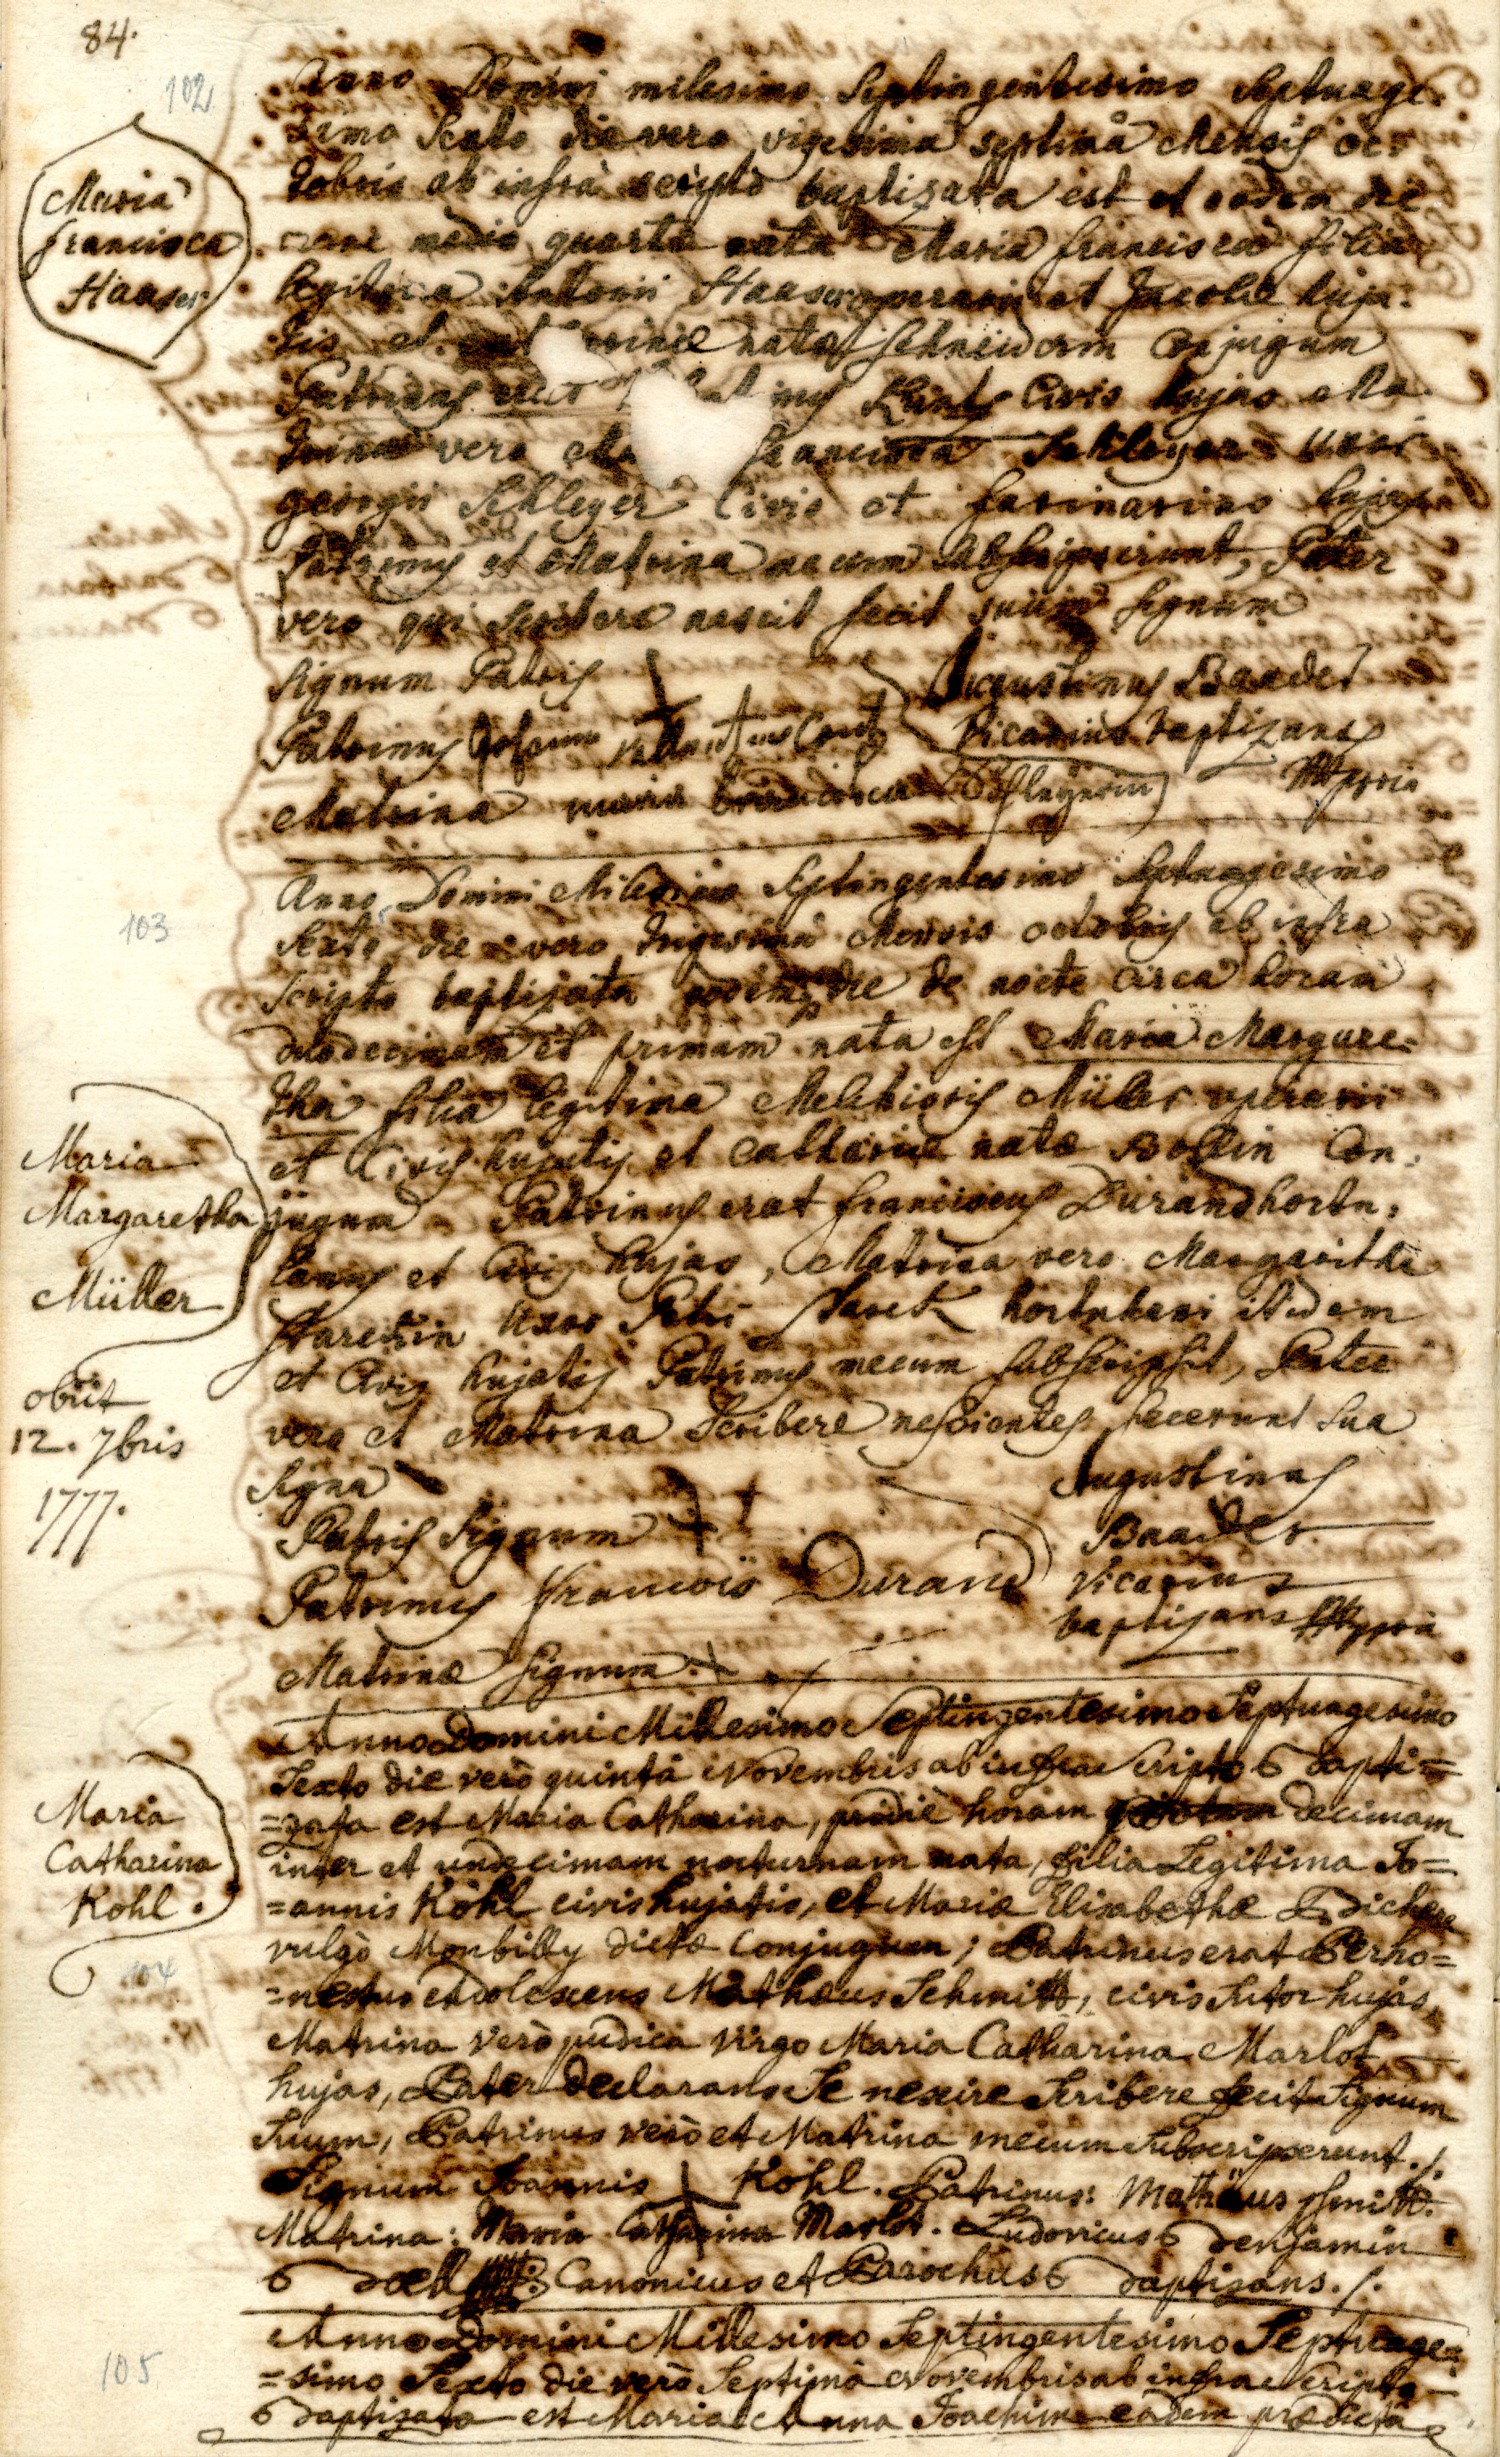 84.
102
Maria
Francisca
Haaser
Anno Domini milesimo Septingentesimo Septuage-
simo Sexto die vero vigesima septima Mensis Oc-
tobris ab infra scripto baptizata est et eadem die
mane media quarta nata Maria Francisca filia
legitima Antonii Haaser operarii et Incolae huja-
tis et nata Schneiderin Conjugum
Patrinus erat Kuntz Civis hujas Ma
trina vero Francisca Schleyer Uxor
georgii Schleyer Civis et farinarius hujas
Patrinus et Matrina mecum Subscripserunt, Pater
vero qui Scribere nescit fecit suum signum
Signum Patris +
Augustinus Baader
Patrinus
Vicarius baptizans
Matrina maria
Mppria
103
Anno Domini Milesimo Septingentesimo Septuagesimo
Sexto die vero trigesima Mensis octobris ab infra
scripto baptizata eodem die de nocte circa horam
duodecimam et primam nata est Maria Margare-
tha filia legitima Melchioris Müller operarii
et Civis hujatis et Catharinae nata Bollin Con-
jugum Patrinus erat franciscus Durand hortu-
lanus et Civis hujas, Matrina vero Margaritha
Uxor Petri hortulani ibidem
et Civis hujatis Patrinus mecum subscripsit, Pater
vero et Matrina Scribere nescientes fecerunt sua
signa
Maria
Margaretha
Müller
obiit
12. 7bris
1777.
Patris Signum +
Augustinus
Baader
Patrinus françois Durand
Vicarius
baptizans Mppria
Matrinae Signum. +
Anno Domini Millesimo Septingentesimo Septuagesimo
Sexto die verò quintâ Novembris ab infra Scripto Bapti=
=zata est Maria Catharina, pridiè horam decimam
inter et undecimam nocturnam nata, filia Legitima Jo=
=annis Kohl civis hujatis, et Mariae Elisabethae
vulgò Monbilly dictae Conjugum; Patrinus erat Perho=
=nestus adolescens Mathaeus Schmitt, civis Sutor hujas,
Matrina verò pudica virgo Maria Catharina Marlot
hujas, Pater declarans Se nescire Scribere fecit Signum
Suum, Patrinus verò et Matrina mecum Subscripserunt. /.
Maria
Catharina
Kohl.
104
Signum Joannis + Kohl. Patrinus: Mathäus Schmitt.
Matrina: Maria Catharina Marlot. Ludovicus Benjamin
Canonicus et Parochus Baptizans. /.
105
Anno Domini Millesimo Septingentesimo Septuage=
=simo Sexto die verò Septimâ Novembris ab infra Scripto
Baptizata est Maria Anna Joachim eâdem praedictâ